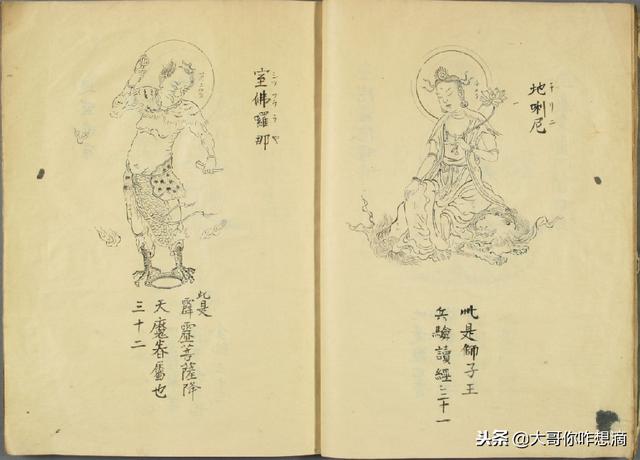 地唎尼
チリニ
此是師子王
兵驗讀經三十一
室佛囉那
此是
霹靂菩薩降
天魔眷屬也
三十二
头条 @大哥你咋想滴